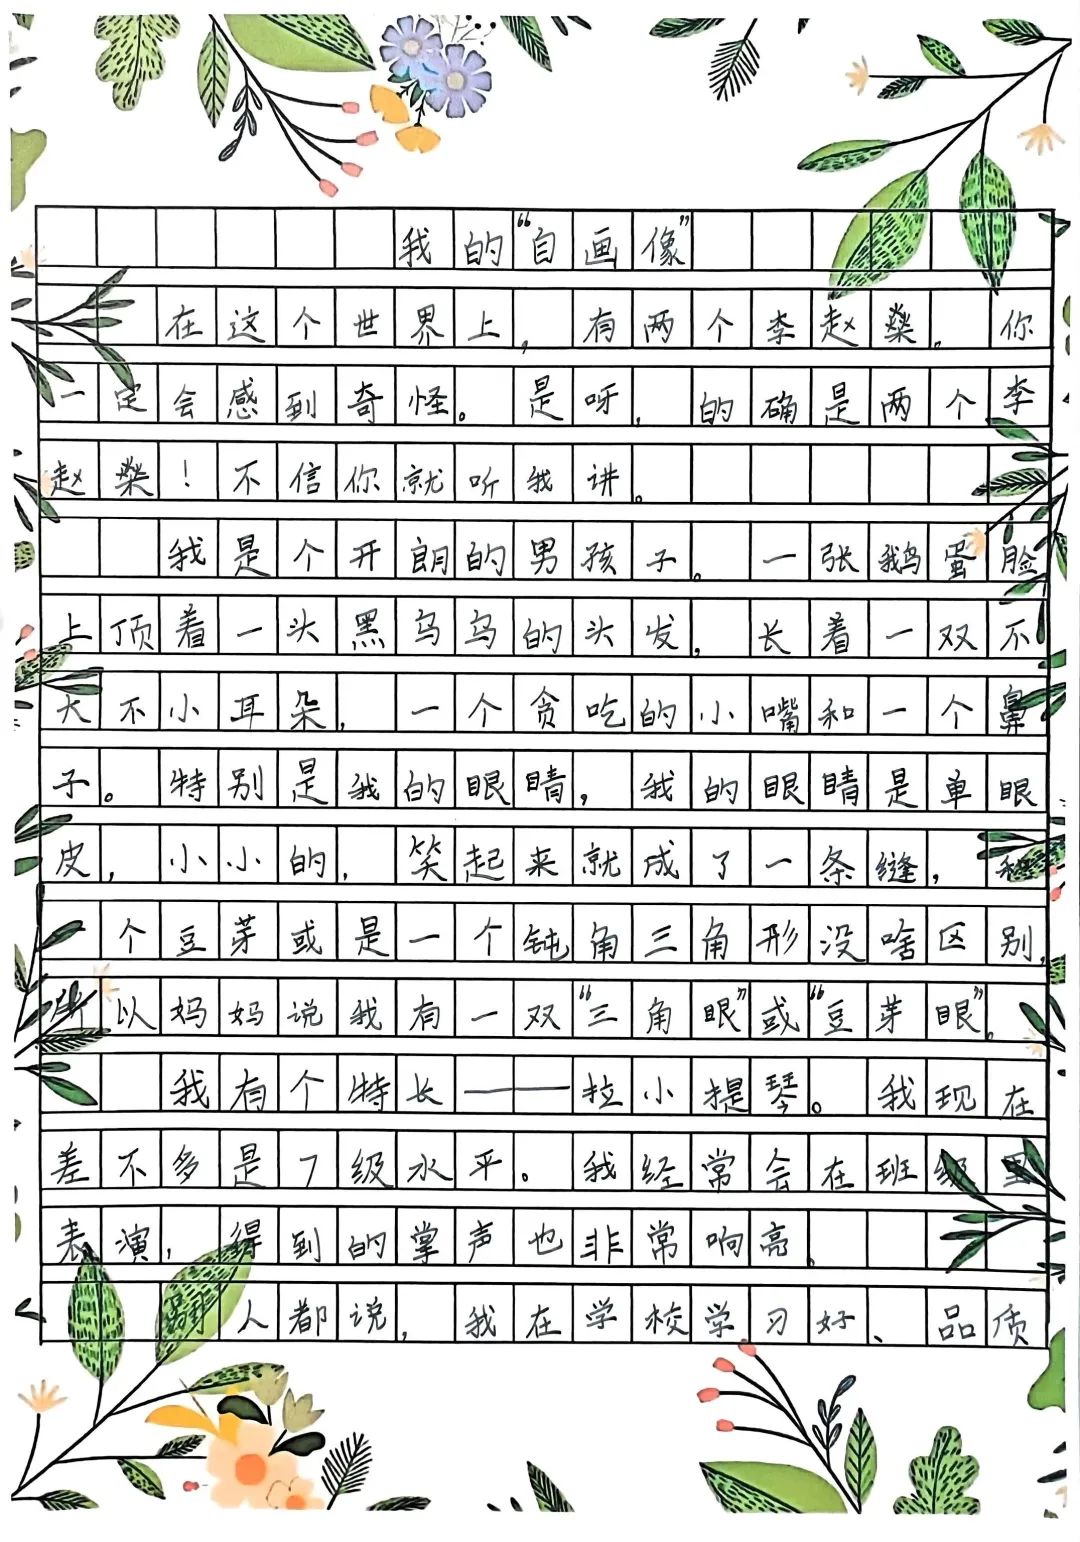 我的“自画像”
在这个世界上，有两个李赵燊。你
一定会感到奇怪。是呀，的确是两个李
赵燊！不信你就听我讲。
我是个开朗的男孩子。一张鹅蛋脸
上顶着一头黑乌乌的头发，长着一双不
大不小耳朵，一个贪吃的小嘴和一个鼻
子。特别是我的眼睛，我的眼睛是单眼
皮，小小的，笑起来就成了一条缝，和
一个豆芽或是一个钝角三角形没啥区别，
所以妈妈说我有一双“三角眼”或“豆芽眼”。
我有个特长——拉小提琴。我现在
差不多是7级水平。我经常会在班级里
表演，得到的掌声也非常响亮。
人都说，我在学校学习好、品质